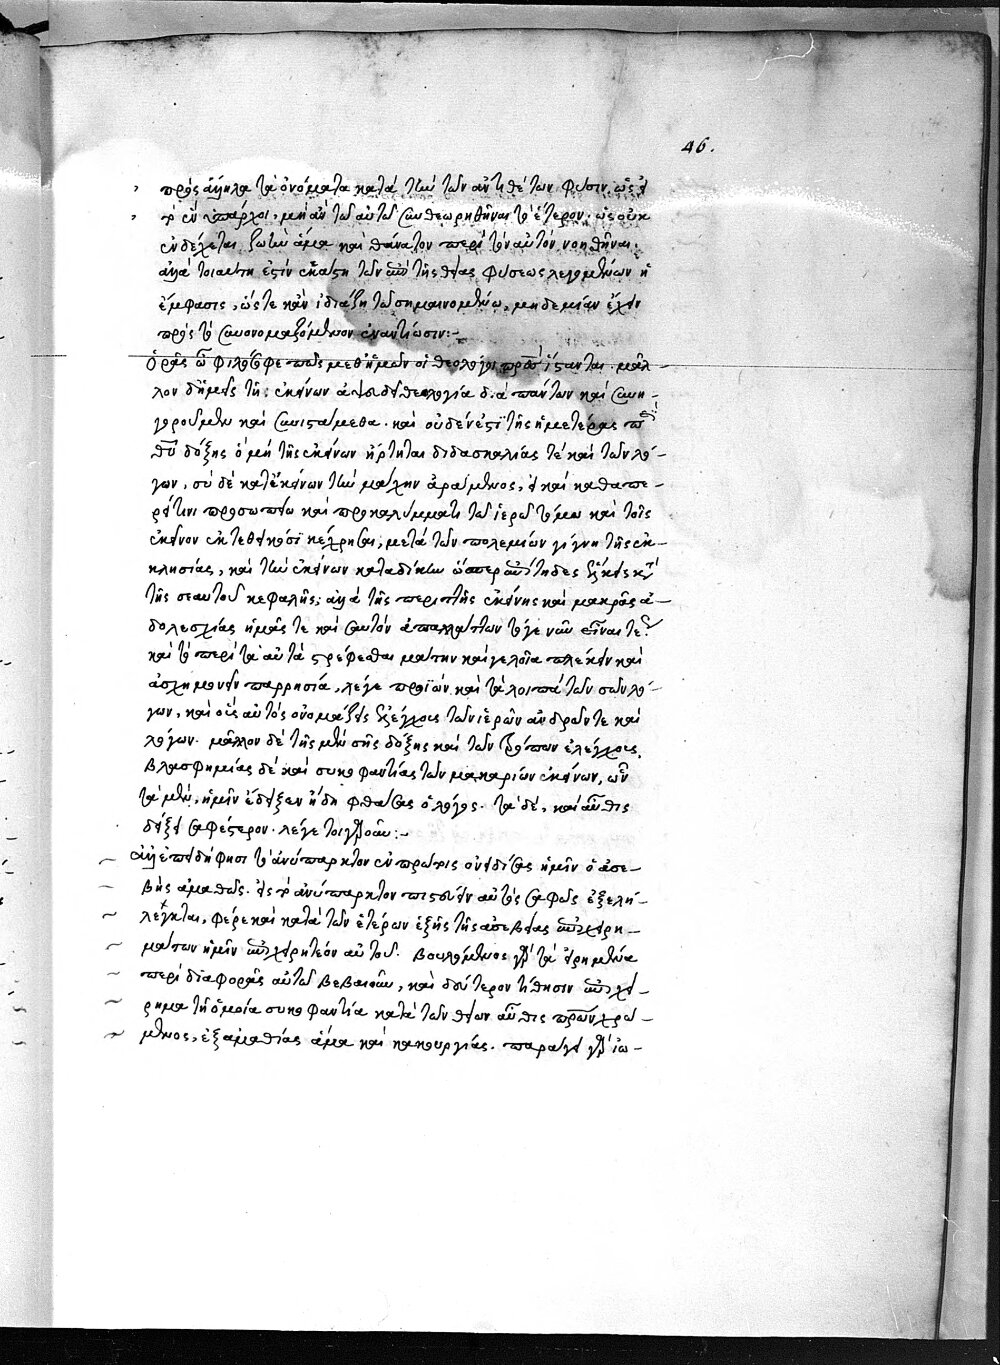 46.
πρὸς ἄλληλα τὰ ὀνόματα κατὰ τὴν τῶν ἀντιθέτων φύσιν, ὡς εἰ
τὸ ἓν ὑπάρχοι, μὴ ἂν τῷ αὐτῷ συνθεωρηθῆναι τὸ ἕτερον. ὡς οὐκ
ἐνδέχεται ζωὴν ἅμα καὶ θάνατον περὶ τὸν αὐτὸν νοηθῆναι.
ἀλλὰ τοιαύτη ἐστὶν ἑκάστη τῶν ἐπὶ τῆς θείας φύσεως λεγομένων ἡ
ἔμφασις, ὥστε κἂν ἰδιάζῃ τῷ σημαινομένῳ, μηδεμίαν ἔχειν
πρὸς τὸ συνονομαζόμενον ἐναντίωσιν:-
Ὁρᾷς ὦ φιλόσοφε πῶς μεθ' ἡμῶν οἱ θεολόγοι ἵστανται. μᾶλ-
λον δ' ἡμεῖς τῇ ἐκείνων ἀψευδεῖ θεολογίᾳ διὰ πάντων καὶ συνη-
γοροῦμεν καὶ συνιστάμεθα. καὶ οὐδέν ἐστι τῆς ἡμετέρας
δόξης ὃ μὴ τῆς ἐκείνων ἤρτηται διδασκαλίας τὲ καὶ τῶν λό-
γων, σὺ δὲ κατ' ἐκείνων τὴν μάχην ἀράμενος, εἰ καὶ καθάπε-
ρ τινι προσωπείῳ καὶ προκαλύμματι τῷ ἱερῷ τόμῳ καὶ τοῖς
ἐκεῖνον ἐκτεθεικόσι κέχρησαι, μετὰ τῶν πολεμίων γίγνῃ τῆς ἐκ-
κλησίας, καὶ τὴν ἐκείνων καταδίκην ὥσπερ ἐπίτηδες ἕλκεις κατὰ
τῆς σεαυτοῦ κεφαλῆς; ἀλλὰ τῆς περιττῆς ἐκείνης καὶ μακρᾶς ἀ-
δολεσχίας ἡμᾶς τε καὶ σαυτὸν ἀπαλλάττων τό γε νῦν εἶναι
καὶ τὸ περὶ τὰ αὐτὰ στρέφεσθαι μάτην καὶ γελοῖα πλέκειν καὶ
ἀσχημονεῖν παρρησίᾳ, λέγε προϊὼν καὶ τὰ λοιπὰ τῶν σῶν λό-
γων, καὶ οὓς αὐτὸς ὀνομάζεις ἐλέγχους τῶν ἱερῶν ἀνδρῶν τε καὶ
λόγων. μᾶλλον δὲ τῆς μὲν σῆς δόξης καὶ τῶν τρόπων ἐλέγχους,
βλασφημίας δὲ καὶ συκοφαντίας τῶν μακαρίων ἐκείνων, ὧν
τὰ μὲν, ἡμῖν ἔδειξεν ἤδη φθάσας ὁ λόγος. τὰ δέ, καὶ αὖθις
δείξει σαφέστερον. λέγε τοιγαροῦν:-
Ἀλλ' ἐπειδή φησι τὸ ἀνύπαρκτον ἐν πρώτοις ὀνειδίσας ἡμῖν ὁ ἀσε-
βὴς ἀμαθῶς. εἰς τὸ ἀνύπαρκτον πιστεύειν αὐτὸς σαφῶς ἐξελή-
λεγκται, φέρε καὶ κατὰ τῶν ἑτέρων ἑξῆς τῆς ἀσεβείας ἐπιχειρη-
μάτων ἡμῖν ἐπιχειρητέον αὐτοῦ. βουλόμενος γὰρ τὰ εἰρημένα
περὶ διαφορᾶς αὐτῷ βεβαιοῦν, καὶ δεύτερον τίθησιν ἐπιχεί-
ρημα τῇ ὁμοίᾳ συκοφαντίᾳ κατὰ τῶν θείων αὖθις χρώ-
μενος, ἐξ ἀμαθίας ἅμα καὶ κακουργίας. παράγει γὰρ ἰω-